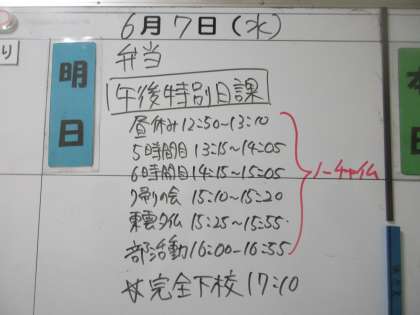 り
6月7日(水)
明日
弁当
午後特別日課
昼休み12:50~13:10
5時間目 13:15~14:05
6時間目 14:15~15:05
帰りの会 15:10~15:20
東雲タイム 15:25~15:55
部活動16:00~16:55
ノーチャイム
☆完全下校 17:10
本日